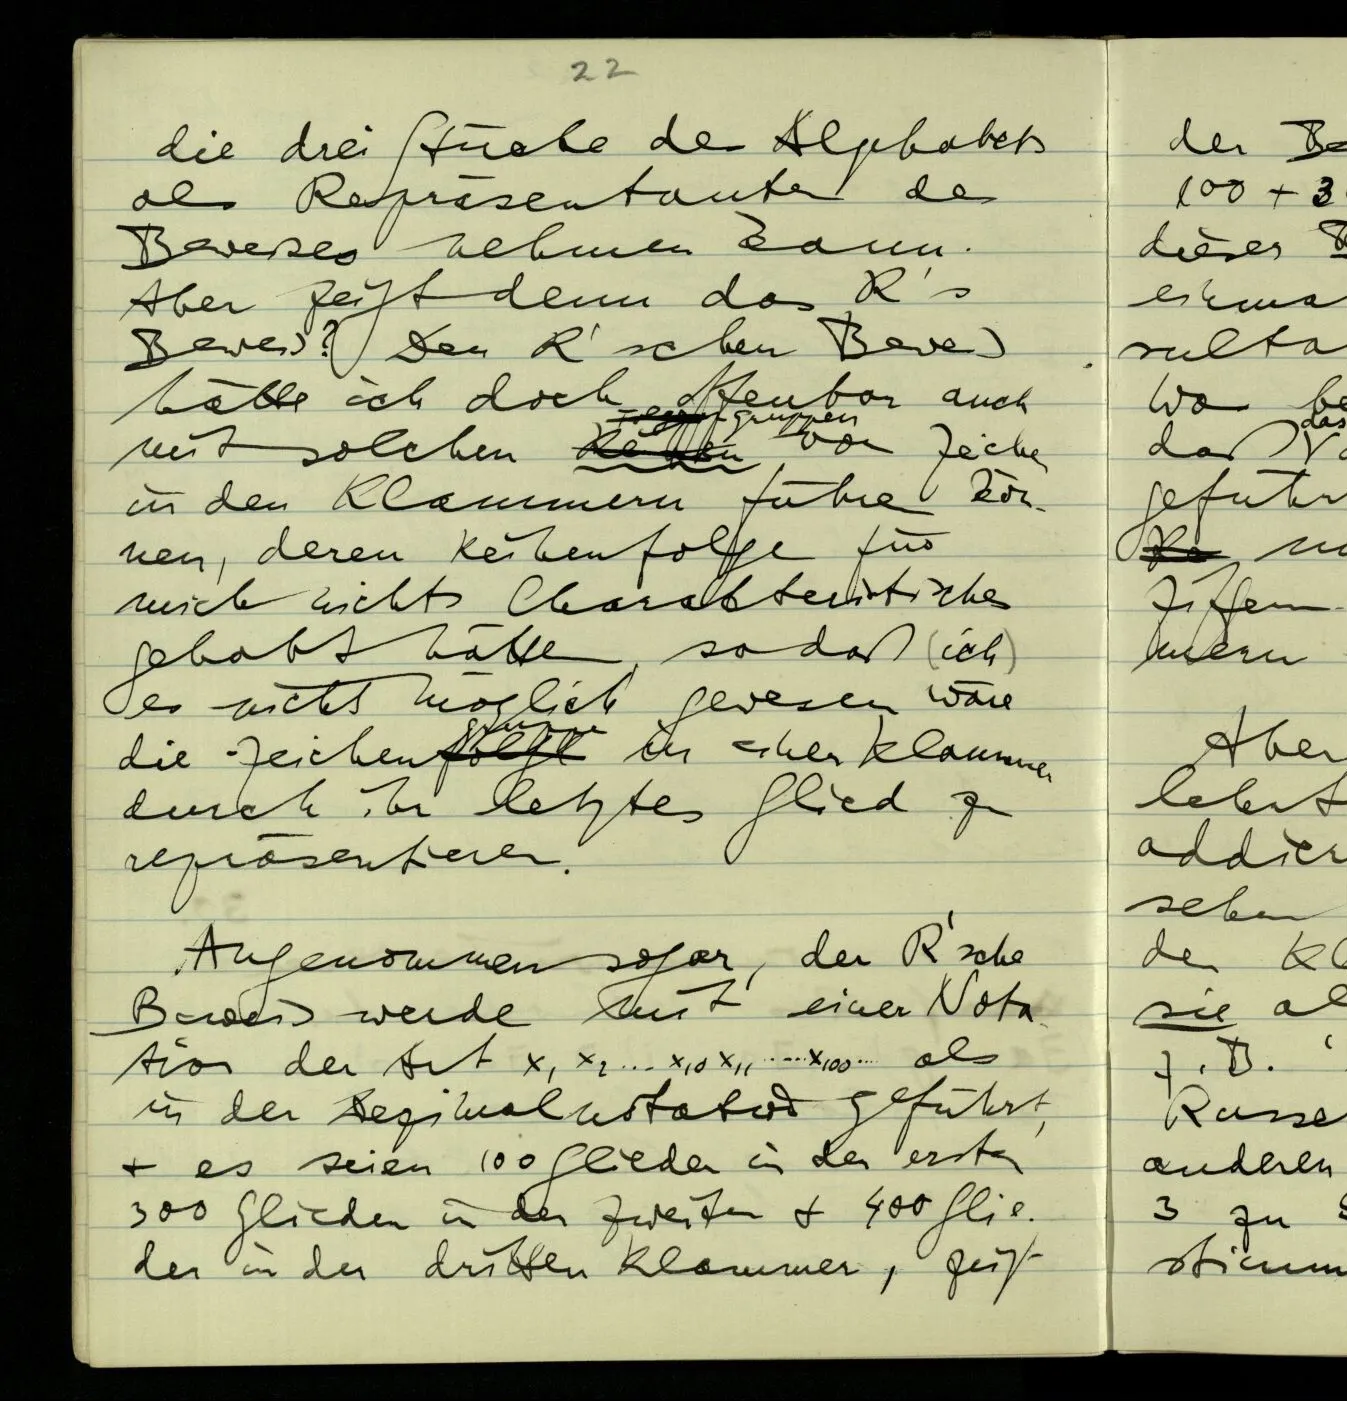 22
die drei Stücke des Alphabets
als Repräsentanten des
Beweises nehmen kann.
Aber zeigt denn das R's
Beweis? Den R'schen Beweis
hätte ich doch offenbar auch
gruppen
mit solchen Reihen von Zeichen
in den Klammern führen kön-
nen, deren Reihenfolge für
mich nichts Charakteristisches
gehabt hätte, sodaß (ich)
es nicht möglich gewesen wäre
gruppe
die Zeichenfolge in einer Klammer
durch ihr letztes Glied zu
repräsentieren.
Angenommen sogar, der R'sche
Beweis werde mit einer Nota-
tion der Art x₁ x₂ ... x₁₀ x₁₁ ..... x₁₀₀ ... als
in der Dezimalnotation geführt,
+ es seien 100 Glieder in der ersten
300 Glieder in der zweiten + 400 Glie-
der in der dritten Klammer, zeigt
der
100 + 3
dieser
einma
sulta
Wo be
das
daß
geführ
Ziffern
mern
Aber
lehrt
addier
sehen
den Kl
sie al
z.B.
Russe
anderen
3 zu
stimm